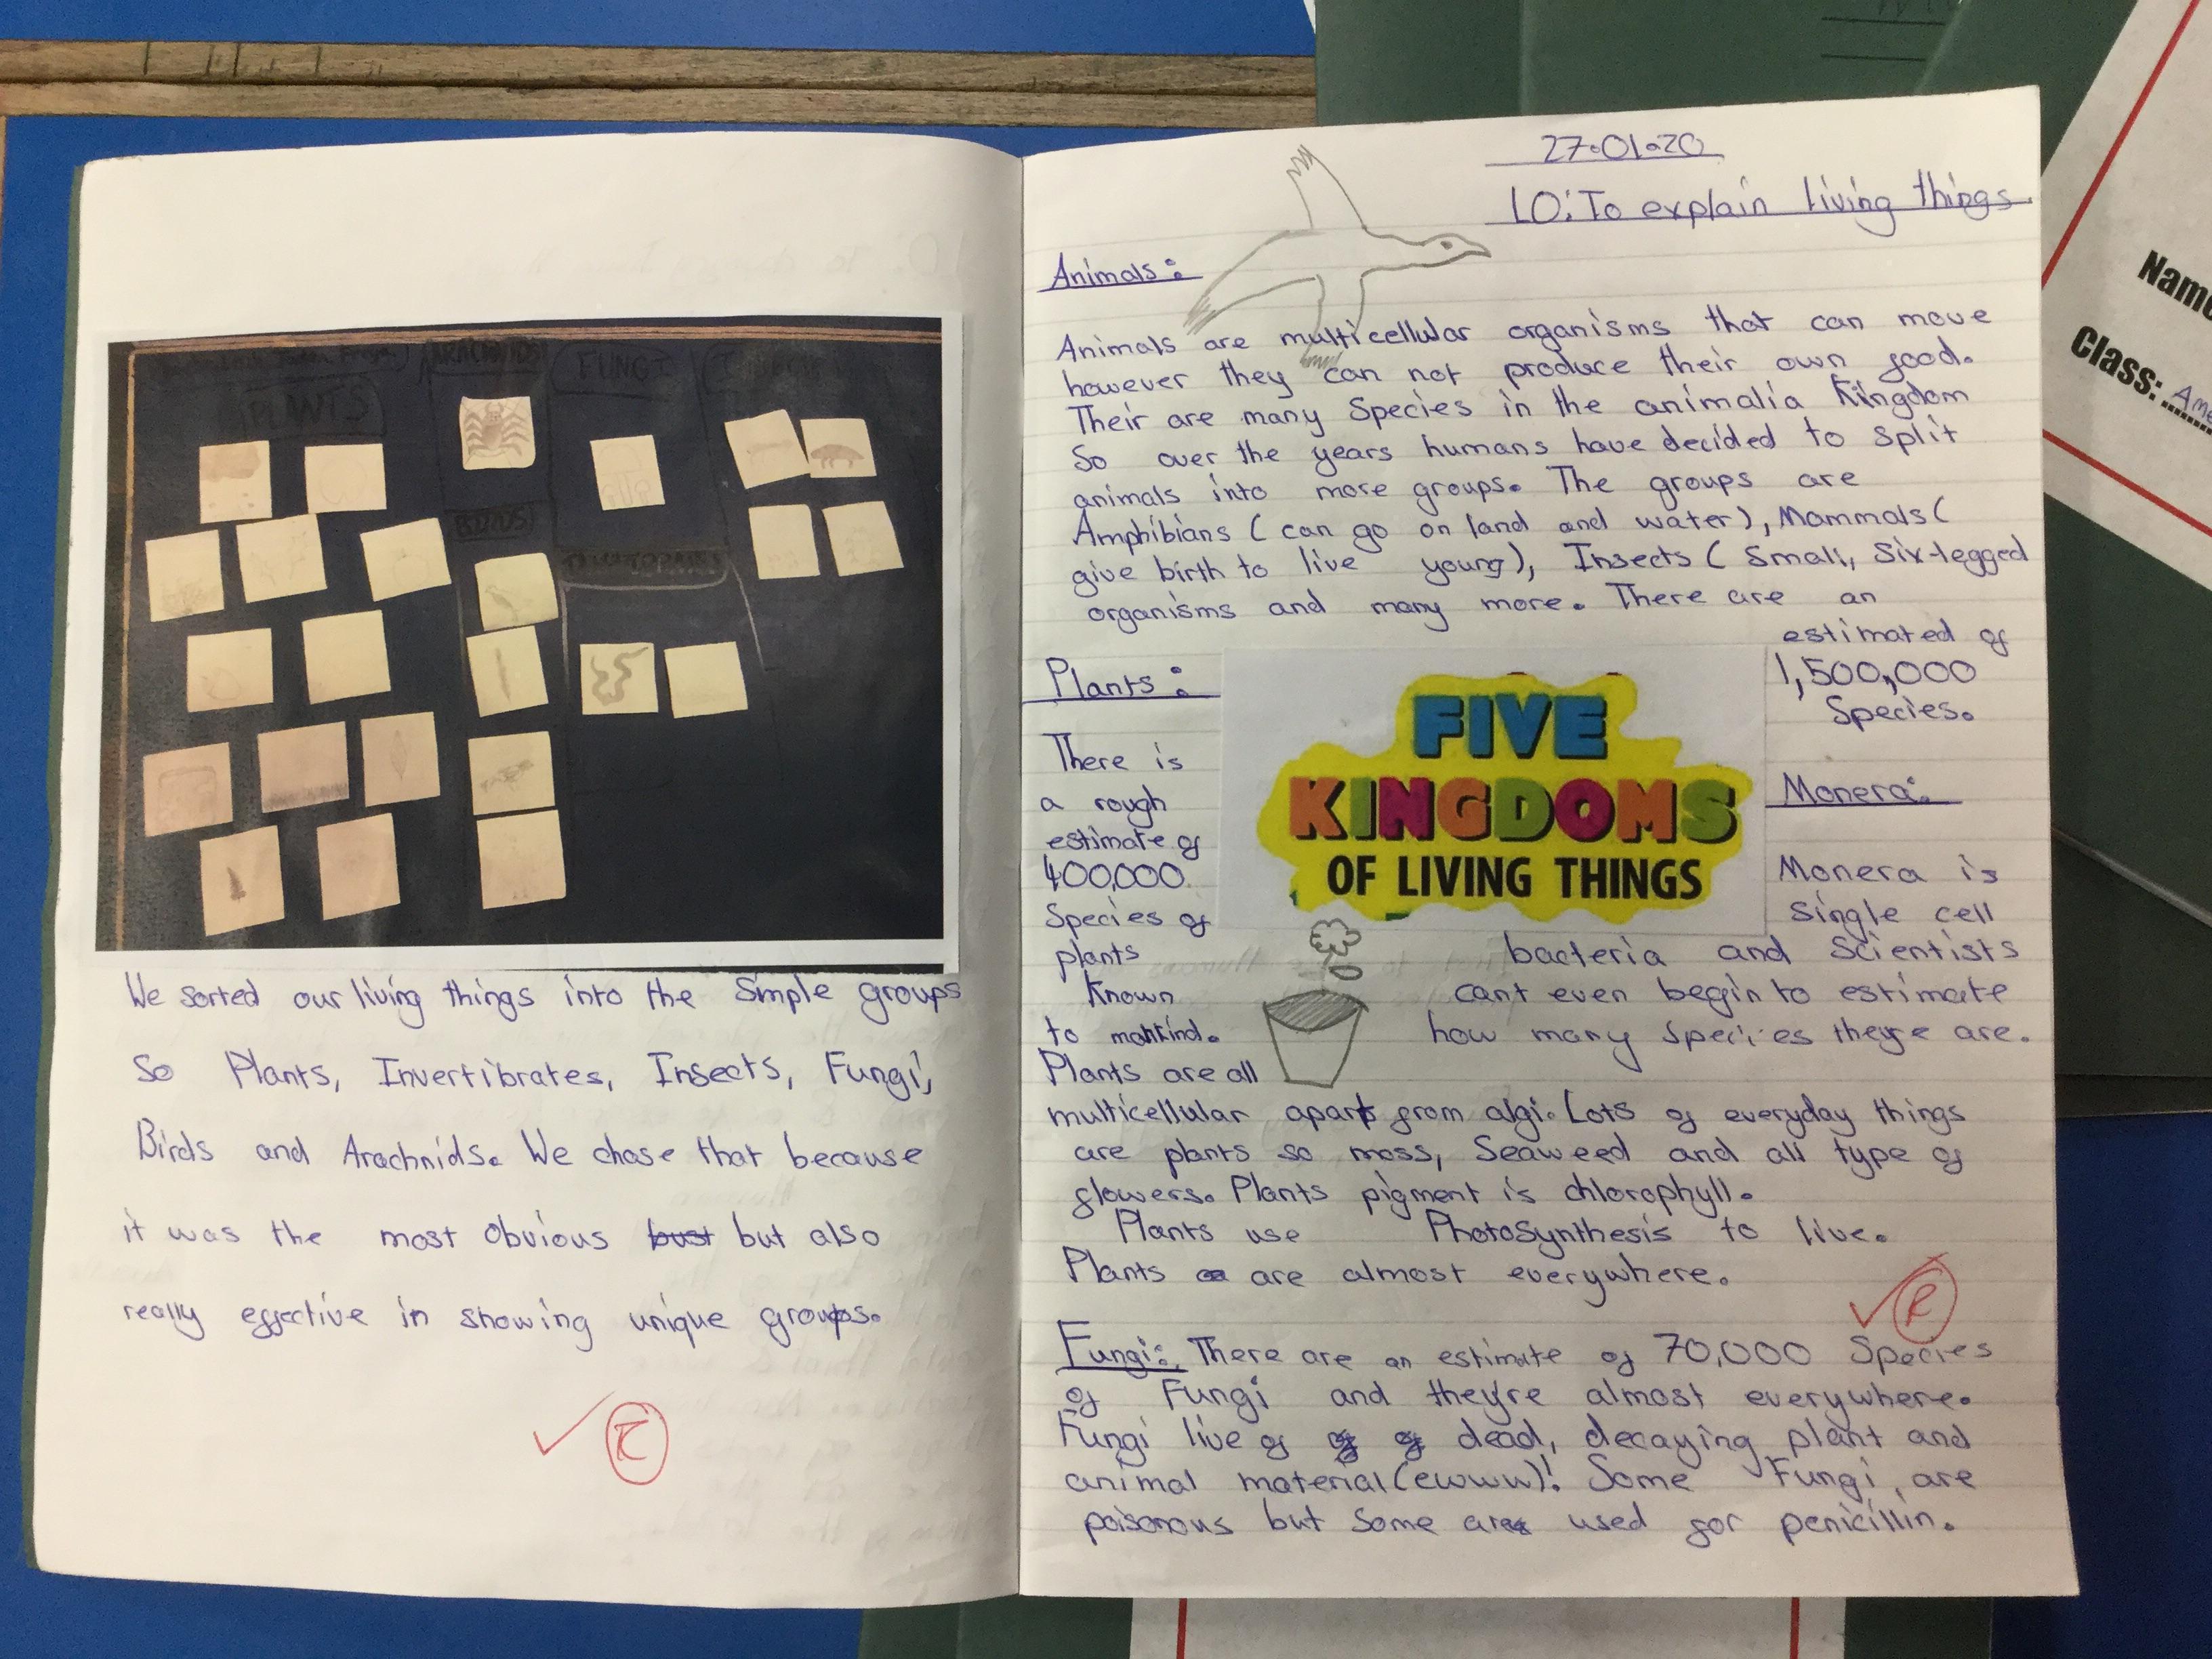 PLANTS
ARACHNIDS
FUNGI
BIRDS
We sorted our living things into the Simple groups
So Plants, Invertibrates, Insects, Fungi,
Birds and Arachnids. We chose that because
it was the most obvious but but also
really effective in showing unique groups.
27.01.20
LO: To explain living things
Animals:
Animals are multicellular organisms that can move
however they can not produce their own food.
Their are many Species in the animalia Kingdom
So over the years humans have decided to split
animals into more groups. The groups are
Amphibians (can go on land and water), Mammals (
give birth to live young), Insects (Small, Six-legged
organisms and many more. There are an
estimated of
1,500,000
Species.
Plants:
There is
a rough
estimate of
400,000
Species of
plants
Known
to mankind.
Plants are all
multicellular apart from algi. Lots of everyday things
are plants so moss, Seaweed and all type of
flowers. Plants pigment is chlorophyll.
Plants use PhotoSynthesis to live.
Plants are almost everywhere.
FIVE
KINGDOMS
OF LIVING THINGS
Monera:
Monera is
Single cell
bacteria and Scientists
cant even begin to estimate
how many Species theyre are.
Fungi: There are an estimate of 70,000 Species
of Fungi and they're almost everywhere.
Fungi live of dead, decaying plant and
animal material (ewww)! Some Fungi are
poisonous but Some are used for penicillin.
Name
Class: